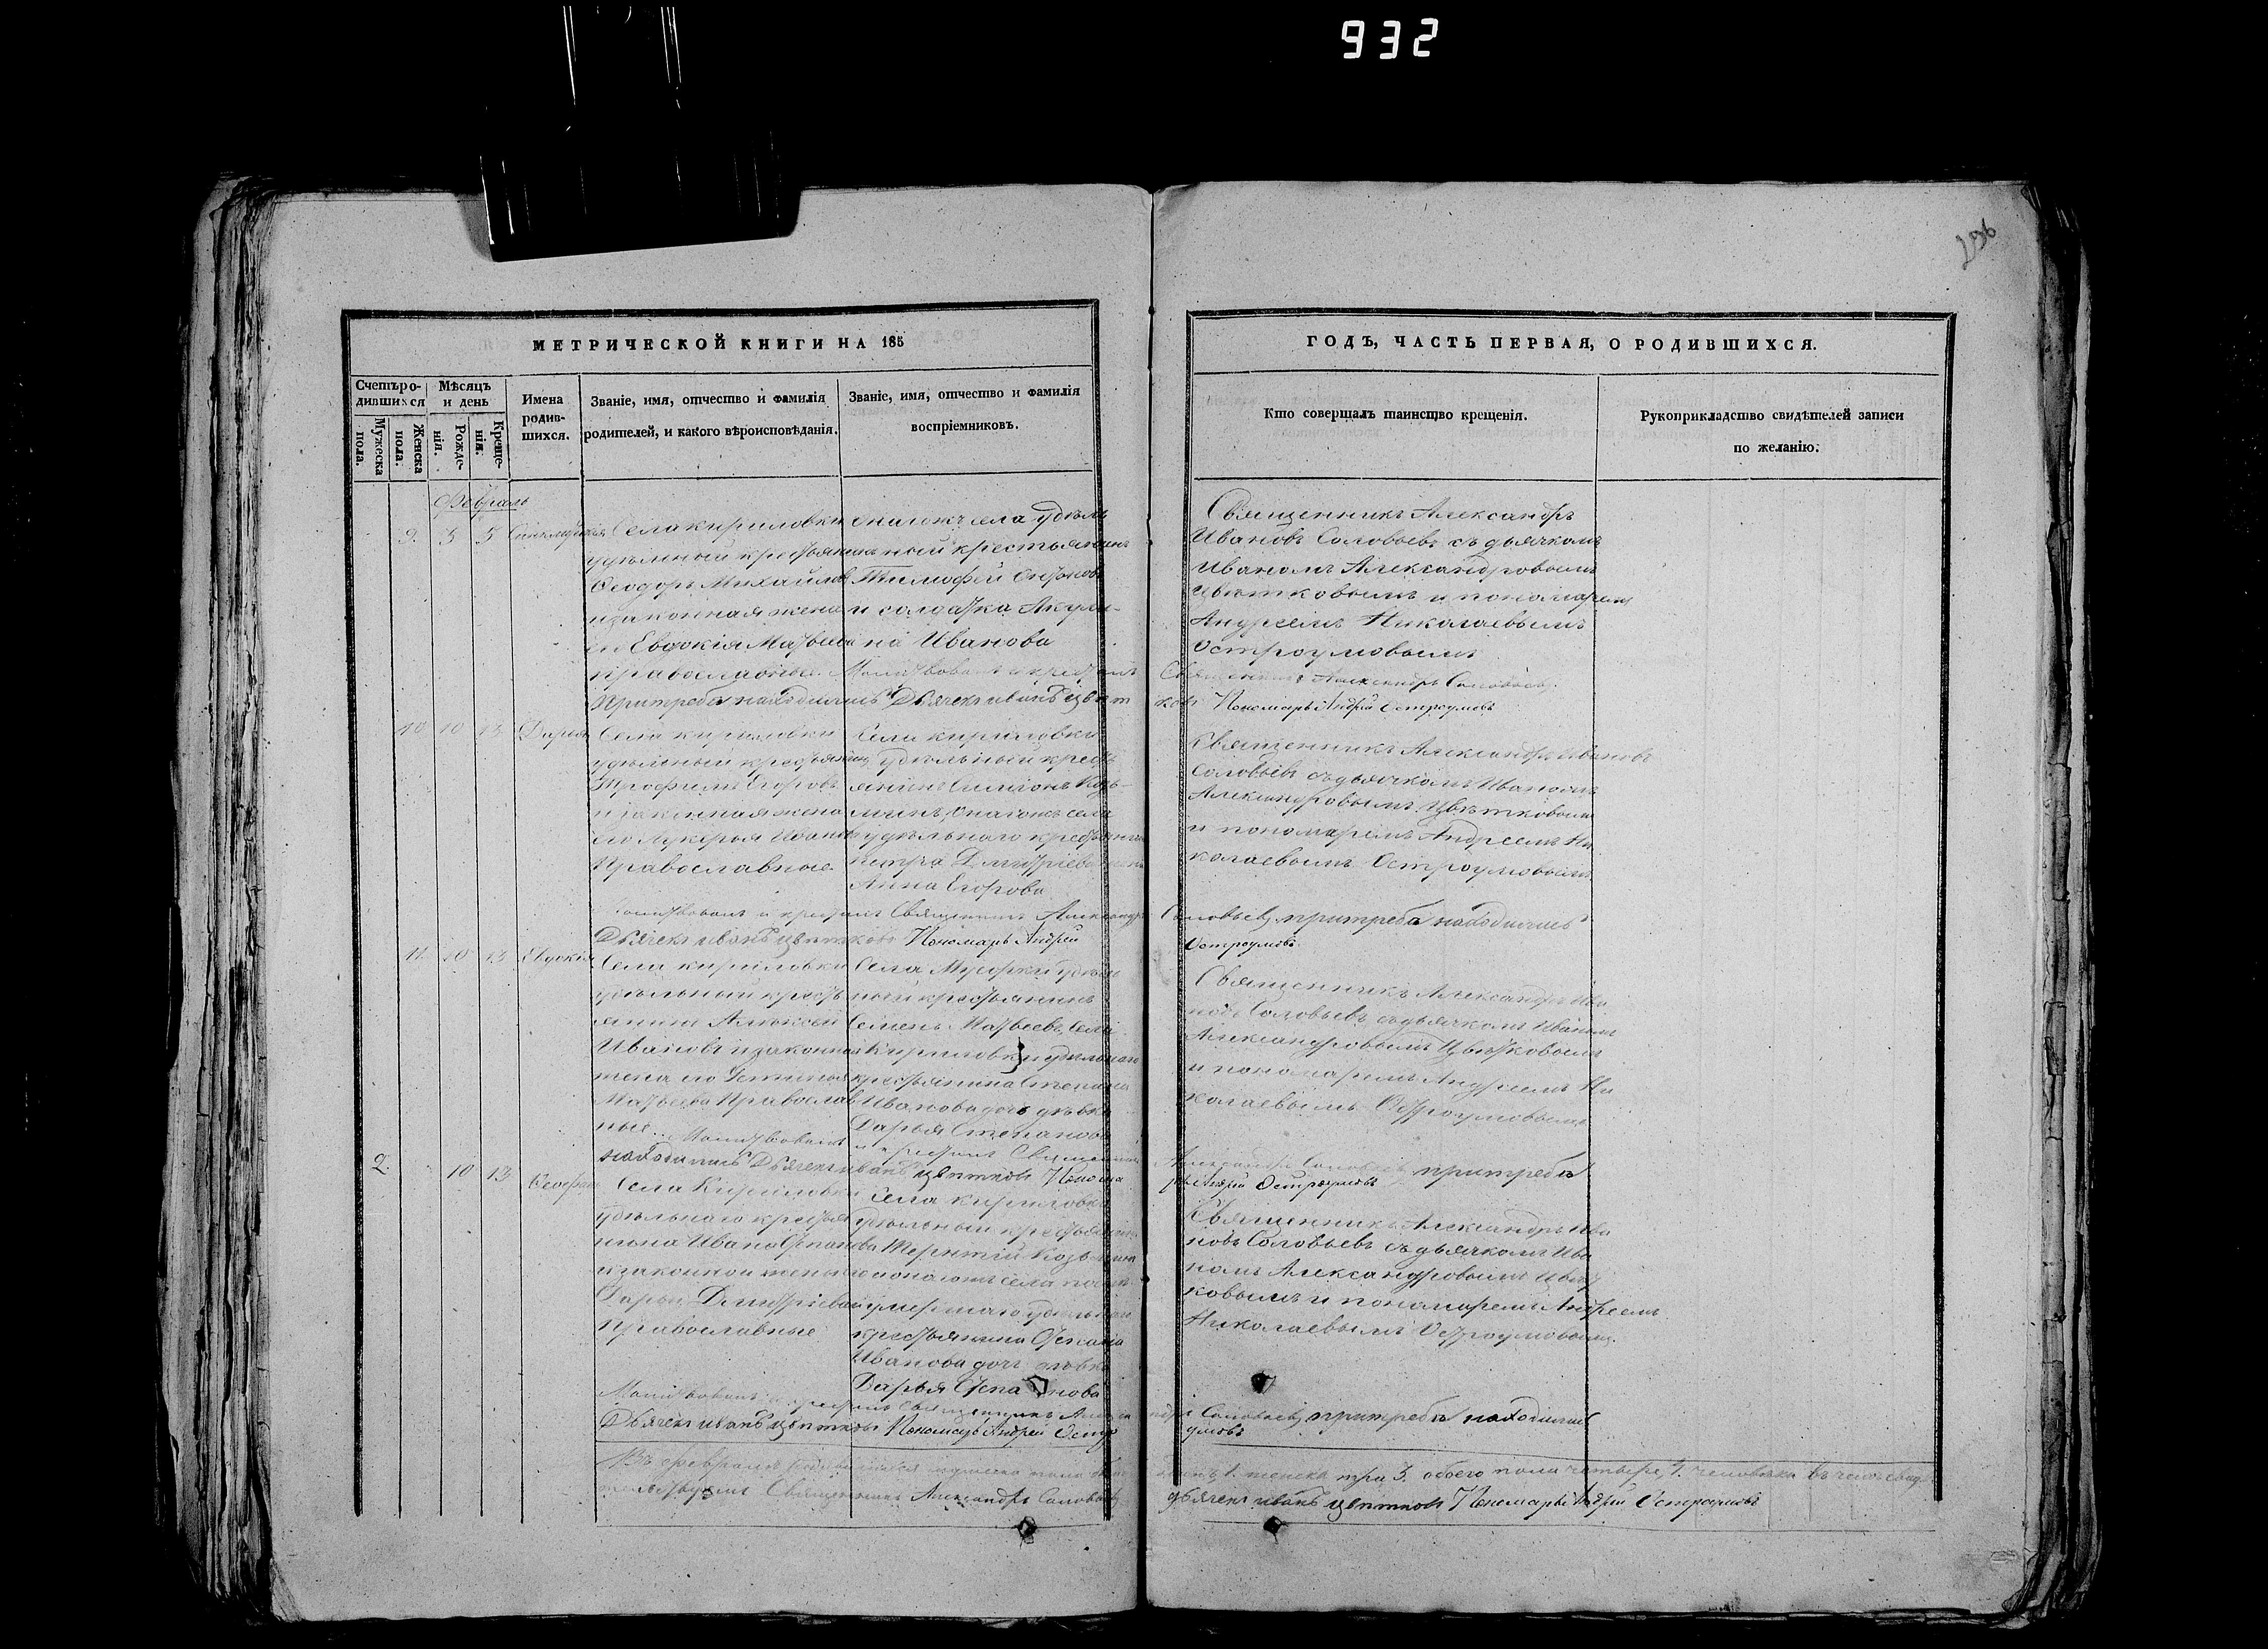 932
296
МЕТРИЧЕСКОЙ КНИГИ НА 185
Счетъ ро-
дившихся
Мужеска
пола.
Женска
пола.
Мѣсяцъ
и день
Рожде-
нія.
Креще-
нія.
Имена
родив-
шихся.
Званіе, имя, отчество и фамилія
родителей, и какого вѣроисповѣданія.
Званіе, имя, отчество и фамилія
воспріемниковъ.
Февраль
9. 5 5
Села Кириловки
удѣльный крестьянинъ
Ѳеодоръ Михайловъ
и законная жена
его Евдокія Матвеева
православные.
онагожъ села удѣль
ный крестьянинъ
Тимофей
и солдатка Акули-
на Иванова
Молитвовалъ и крестилъ
Притребѣ находились Дьячекъ иванъ цвѣт
10 10 13 Дарья
Села Кириловки
удѣльный крестьянинъ
Трофимъ Егоровъ
и законная жена
его Лукерья Иванова
Православные
Села Кириловки
удѣльный кресть
янинъ Симіонъ Козь-
минъ, онагожъ села
удѣльнаго крестьянина
Петра Дмитріева жена
Анна Егорова
Молитвовалъ и крестилъ Священникъ Александръ
Дьячекъ иванъ цвѣтковъ Пономарь Андрей
11. 10 13 Евдокія
Села Кириловки
удѣльный кресть
янинъ Алексѣй
Ивановъ и законная
жена его Устинья
Матвеева Православ
ные.
Села Мусорки удѣль
ный крестьянинъ
Семенъ Матвеевъ, Села
Кириловки удѣльнаго
крестьянина Степана
Иванова дочь дѣвка
Дарья Степанова
Молитвовалъ и крестилъ Священникъ
находились Дьячекъ иванъ цвѣтковъ Понома
2. 10 13
Села Кириловки
удѣльнаго крестья
нина Ивана Степанова
и законной жены его
Дарьи Дмитріевой
Православные
Села Кириловки
удѣльный крестьянинъ
Терентій Козьминъ
и онагожъ села
умершаго удѣльнаго
крестьянина Степана
Иванова дочь дѣвка
Дарья Степанова
Молитвовалъ и крестилъ Священникъ Алекса
Дьячекъ иванъ цвѣтковъ Пономарь Андрей Остро
Въ февралѣ родившихся мужеска пола
тельствуемъ Священникъ Александръ Соловьевъ
ГОДЪ, ЧАСТЬ ПЕРВАЯ, О РОДИВШИХСЯ.
Кто совершалъ таинство крещенія.
Рукоприкладство свидѣтелей записи
по желанію.
Священникъ Александръ
Ивановъ Соловьевъ съ дьячкомъ
Иваномъ Александровымъ
Цвѣтковымъ и пономаремъ
Андреемъ Николаевымъ
Остроумовымъ
Священникъ Александръ Соловьевъ
ковъ Пономарь Андрей Остроумовъ
Священникъ Александръ Ивановъ
Соловьевъ съ дьячкомъ Иваномъ
Александровымъ Цвѣтковымъ
и пономаремъ Андреемъ Ни
колаевымъ Остроумовымъ
Соловьевъ притребѣ находились
Остроумовъ
Священникъ Александръ Ива
новъ Соловьевъ съ дьячкомъ Иваномъ
Александровымъ Цвѣтковымъ
и пономаремъ Андреемъ Ни
колаевымъ Остроумовымъ
Александръ Соловьевъ притребѣ
рь Андрей Остроумовъ
Священникъ Александръ Ива
новъ Соловьевъ съ дьячкомъ Ива
номъ Александровымъ Цвѣт
ковымъ и пономаремъ Андреемъ
Николаевымъ Остроумовымъ
ндръ Соловьевъ притребѣ находились
умовъ
одинъ 1. женска три 3. обоего пола четыре 4. человѣка въ чемъ свидѣ
дьячекъ иванъ цвѣтковъ Пономарь Андрей Остроумовъ